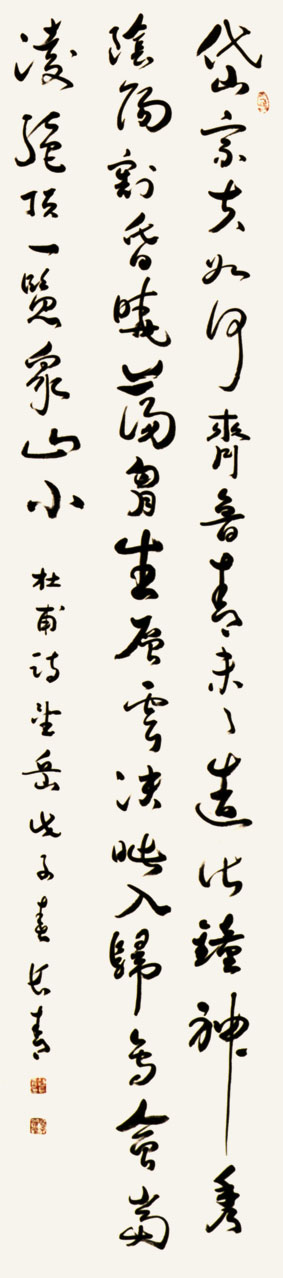 岱宗夫如何齊魯青未了造化鐘神秀
陰陽割昏曉蕩胷生層雲决眦入歸鳥會當
凌絶頂一覽衆山小 杜甫詩望岳戊子春長青